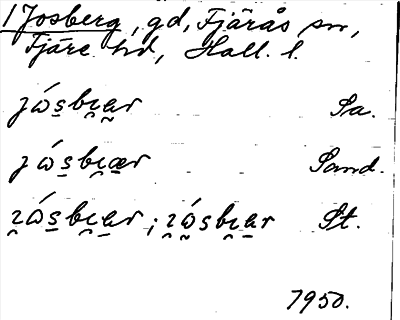 1 Josberg, gd, Fjärås sn,
Fjäre hd, Hall. l.
jósbɛr Sa.
jósbær Sand.
ɿósbɛr; ɿósbɛr St.
1950.